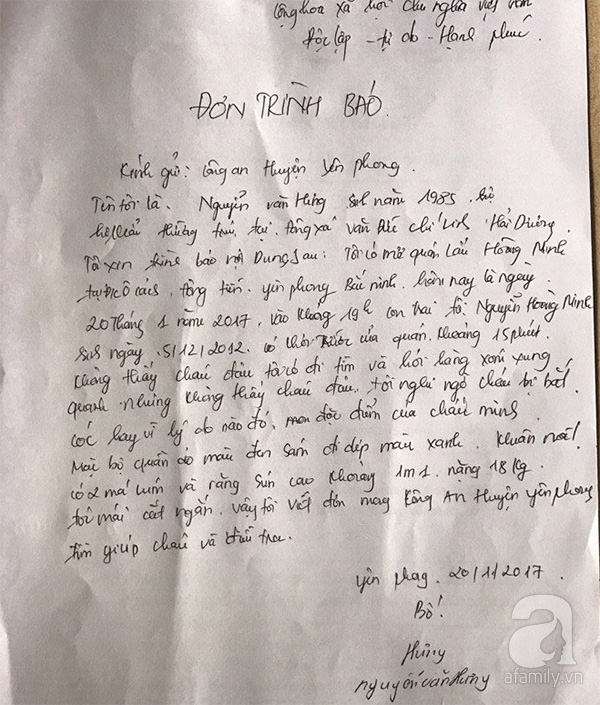 Cộng hoa xã hội chủ nghĩa việt nam
Độc lập - tự do - Hạnh phúc.
ĐƠN TRÌNH BÁO.
Kính gửi: Công an Huyện Yên phong.
Tên tôi là. Nguyễn văn Hưng sinh năm 1985.
thường trú tại. Văn Đức chí Linh Hải Dương.
Tôi xin báo nội Dung sau: Tôi có mở quán Lẩu Hoàng Ninh
tại Ô cách, Đông tiến. yên phong Bắc ninh. hôm nay là ngày
20 Tháng 1 năm 2017, vào khoảng 19h con trai tôi Nguyễn Hoàng Ninh
sinh ngày. 5/12/2012. có chơi trước cửa quán. khoảng 15 phút.
không thấy cháu đâu tôi có đi tìm và hỏi hàng xóm xung
quanh nhưng không thấy cháu đâu. tôi nghi ngờ cháu bị bắt
cóc hay vì lý do nào đó. đặc điểm của cháu mình
Mặc bộ quần áo màu đen sám đi dép màu xanh. khuân mặt
có 2 má lúm và răng sún cao khoảng 1m1. nặng 18kg.
tóc mái cắt ngắn. vậy tôi viết đơn mong Công An Huyện yên phong
tìm giúp cháu và điều tra.
yên phong. 20/1/2017.
Bố!
Hưng
Nguyễn văn Hưng
a
afamily.vn